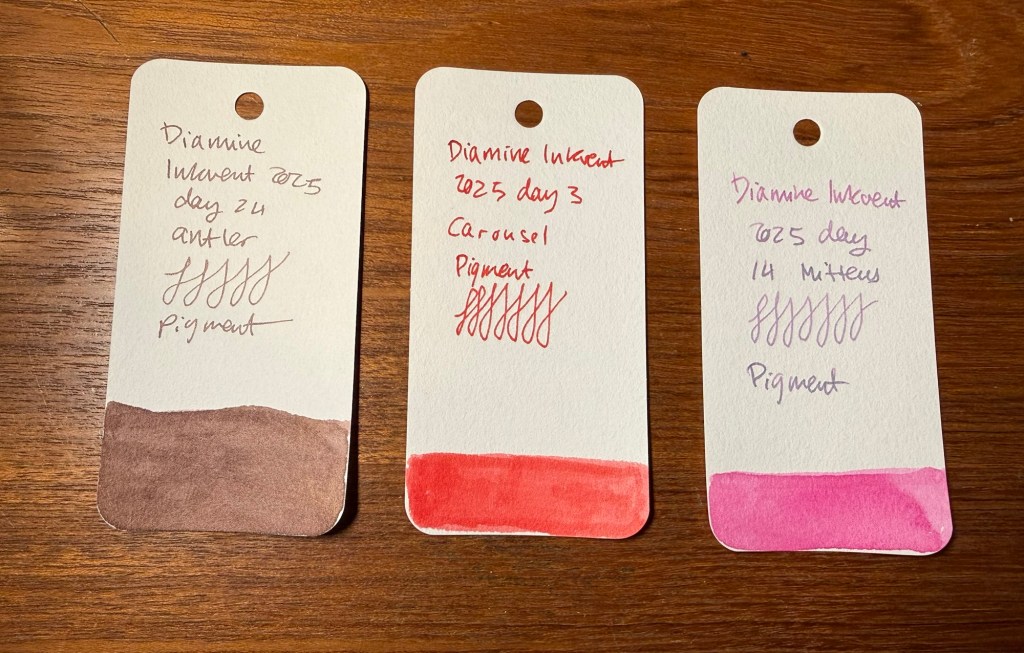 Diamine
Inkvent 2025
day 24
antler
pigment
Diamine Inkvent
2025 day 3
Carousel
Pigment
Diamine Inkvent
2025 day
14 Mittens
Pigment